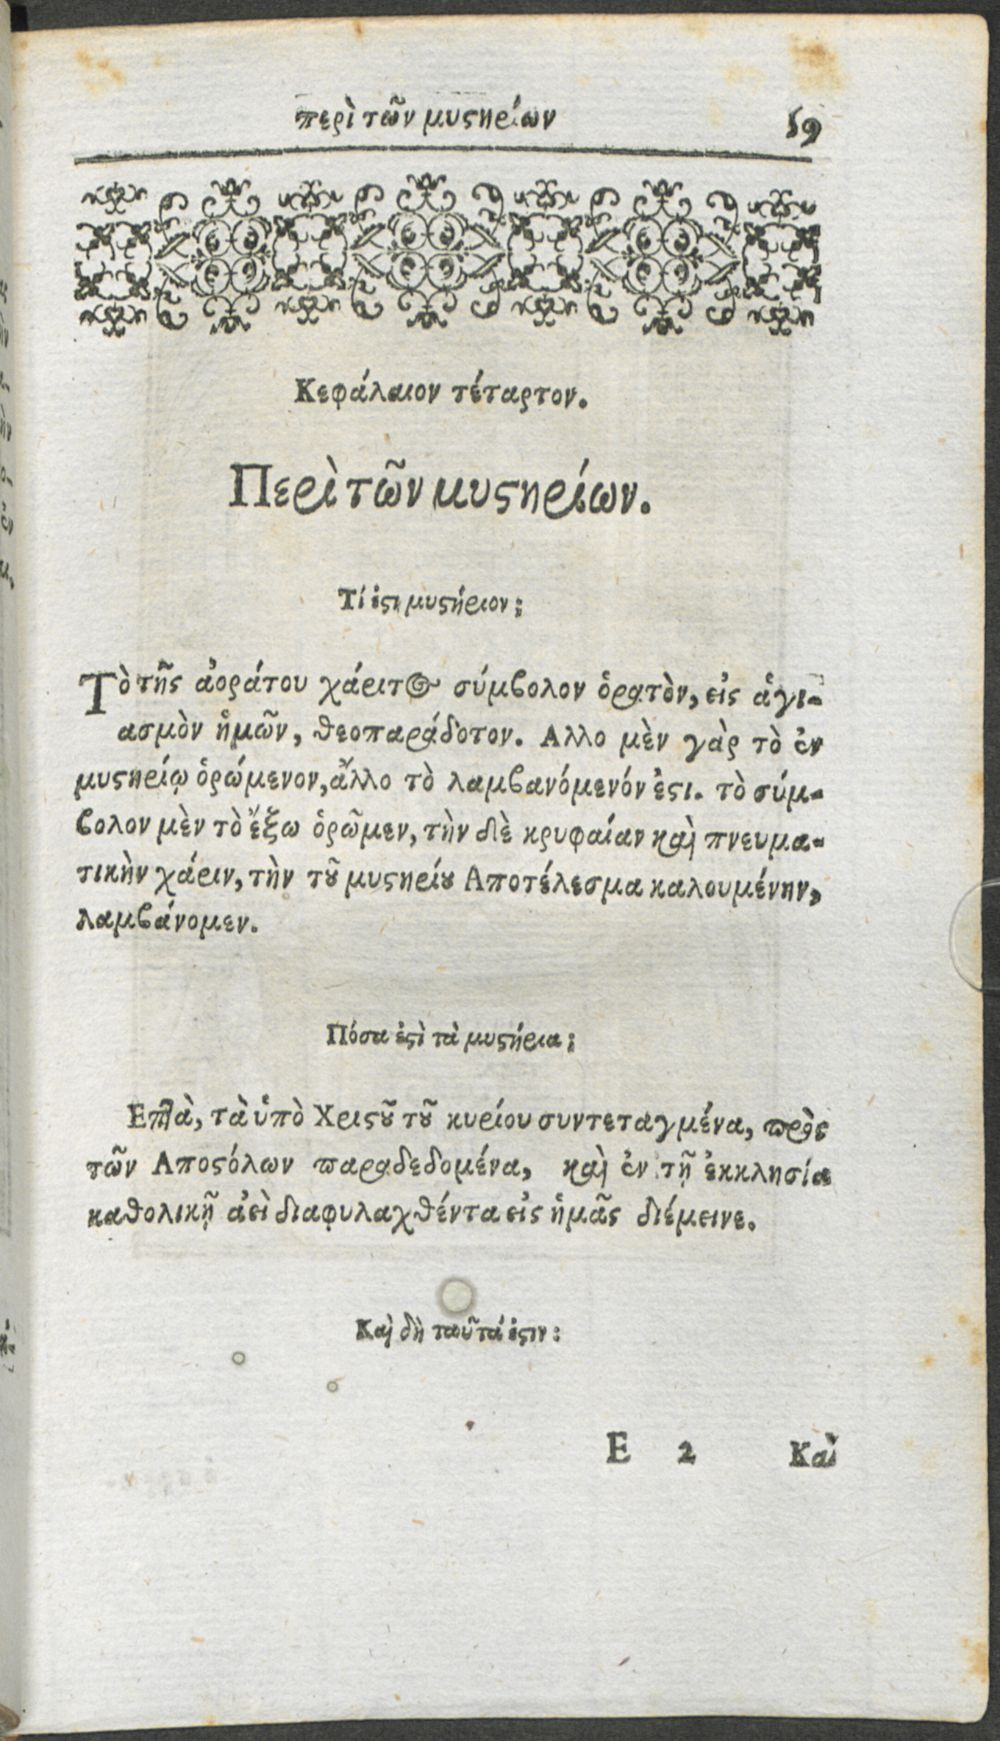 περὶ τῶν μυϛηρίων 59
Κεφάλαιον τέταρτον.
Περὶ τῶν μυϛηρίων.
Τί ἐϛι μυϛήριον;
Τὸ τῆς ἀοράτου χάριτος σύμβολον ὁρατὸν, εἰς ἁγι-
ασμὸν ἡμῶν, θεοπαράδοτον. Αλλο μὲν γὰρ τὸ ἐν
μυϛηρίῳ ὁρώμενον, ἄλλο τὸ λαμβανόμενόν ἐϛι. τὸ σύμ-
βολον μὲν τὸ ἔξω ὁρῶμεν, τὴν δὲ κρυφαίαν καὶ πνευμα-
τικὴν χάριν, τὴν τȣ͂ μυϛηρίȣ Αποτέλεσμα καλουμένην,
λαμβάνομεν.
Πόσα ἐϛὶ τὰ μυϛήρια;
Επτὰ, τὰ ὑπὸ Χριϛȣ͂ τȣ͂ κυρίου συντεταγμένα, πρὸς
τῶν Αποϛόλων παραδεδομένα, καὶ ἐν τῇ ἐκκλησία
καθολικῇ ἀεὶ διαφυλαχθέντα εἰς ἡμᾶς διέμεινε.
Καὶ δὴ ταῦτά ἐϛιν:
E 2 Καὶ